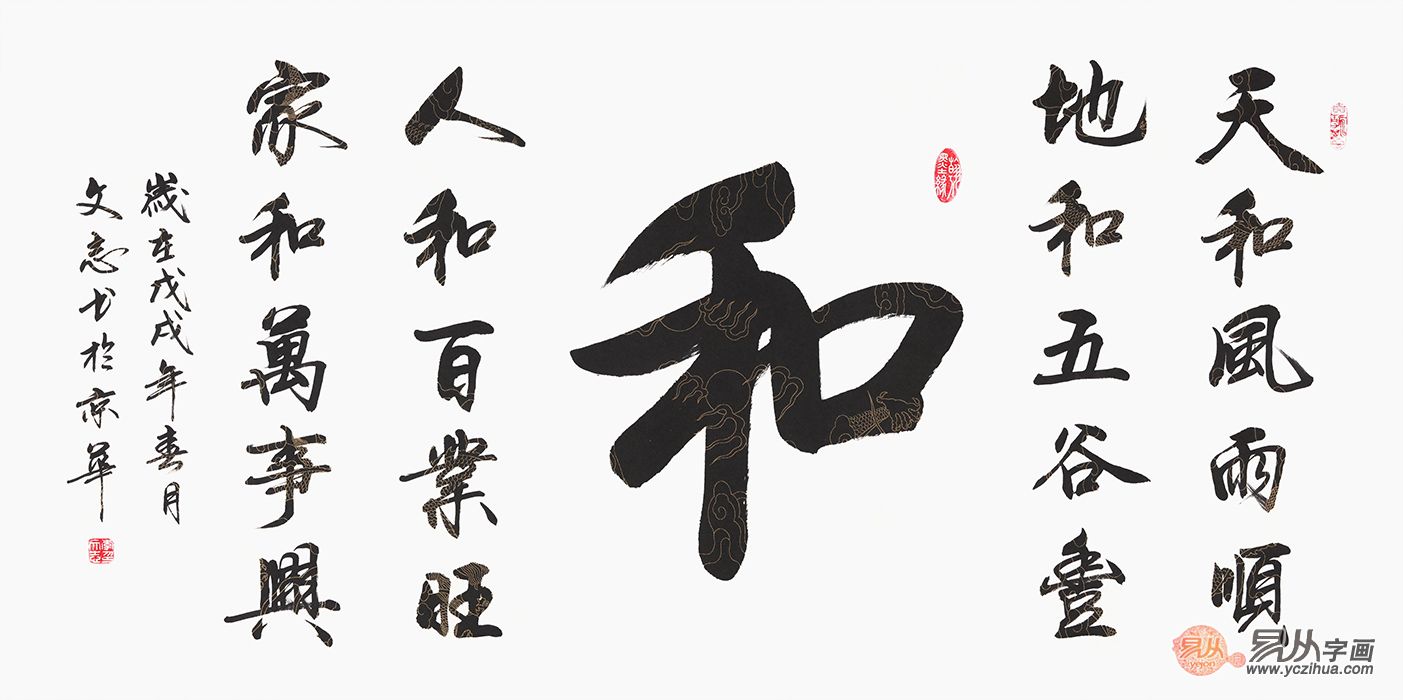 天和風雨順
地和五谷豐
和
人和百業旺
家和萬事興
歲在戊戌年春月
文志书於京华
易从
yejon
易从字画
www.yczihua.com